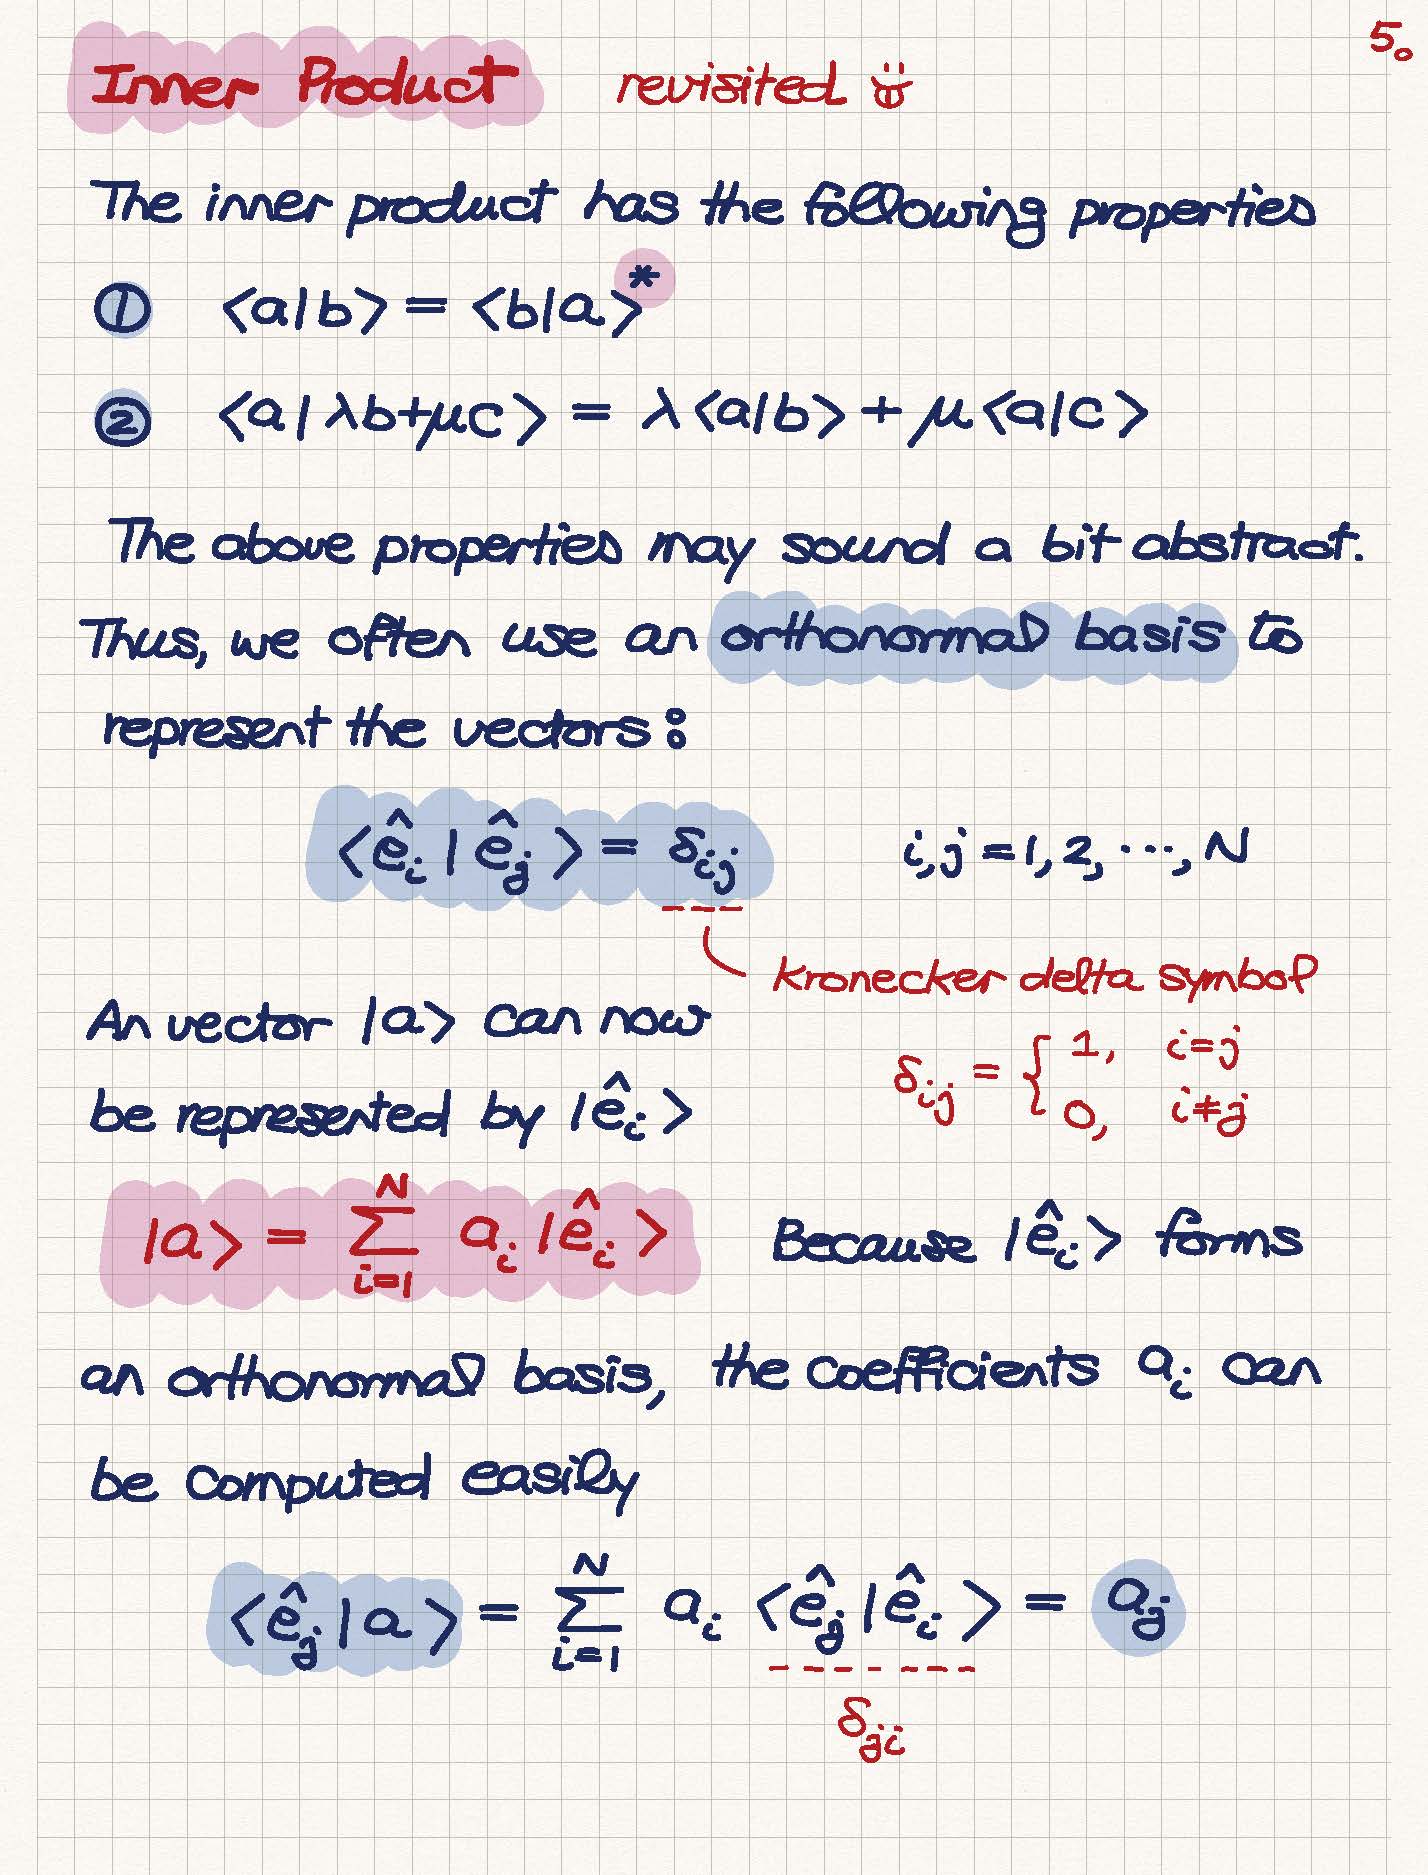 5.
Inner Product revisited
The inner product has the following properties
① ⟨a|b⟩ = ⟨b|a⟩*
② ⟨a|λb+μc⟩ = λ⟨a|b⟩ + μ⟨a|c⟩
The above properties may sound a bit abstract.
Thus, we often use an orthonormal basis to
represent the vectors:
⟨ê_i|ê_j⟩ = δ_ij    i,j = 1, 2, ⋯, N
kronecker delta symbol
δ_ij = { 1, i=j
0, i≠j
An vector |a⟩ can now
be represented by |ê_i⟩
|a⟩ = ∑_{i=1}^{N} a_i |ê_i⟩    Because |ê_i⟩ forms
an orthonormal basis, the coefficients a_i can
be computed easily
⟨ê_j|a⟩ = ∑_{i=1}^{N} a_i ⟨ê_j|ê_i⟩ = a_j
δ_ji